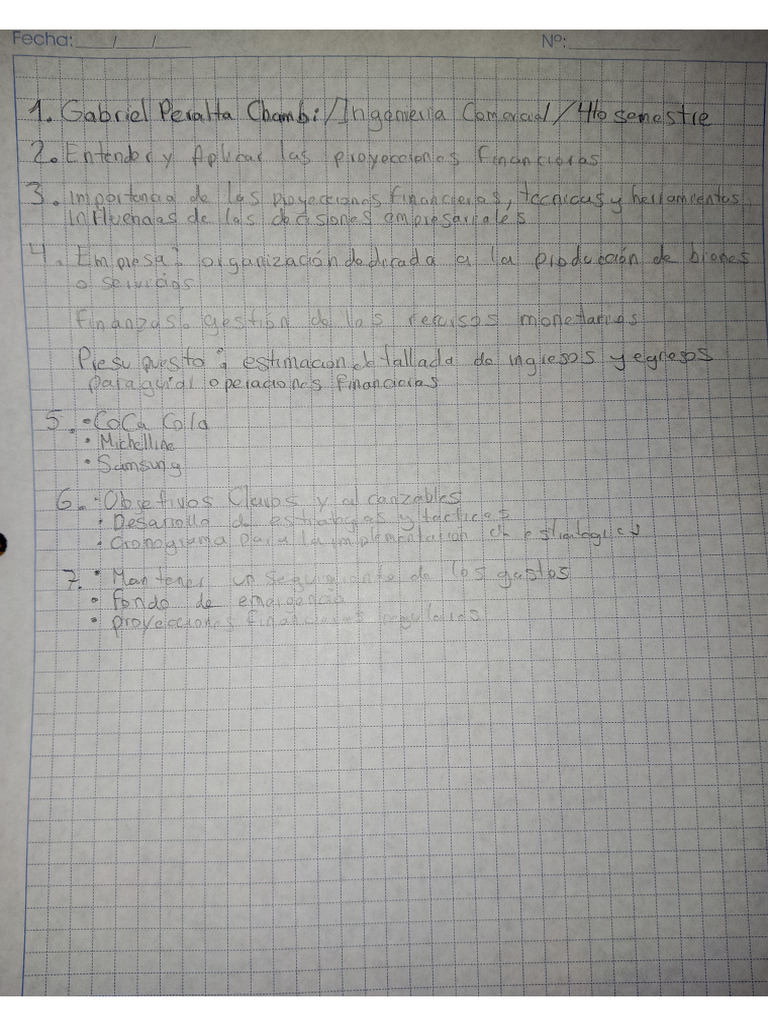 Fecha: / /
Nº:
1. Gabriel Peralta Chambi / Ingenieria Comercial / 4to semestre
2. Entender y Aplicar las proyecciones financieras
3. Importancia de las proyecciones financieras, tecnicas y herramientas,
Influencias de las decisiones empresariales
4. Empresa: organización dedicada a la producción de bienes
o servicios
Finanzas: gestión de los recursos monetarios
Presupuesto: estimacion detallada de ingresos y egresos
para guiar operaciones financieras
5. • CoCa Cola
• Michelline
• Samsung
6. • Objetivos Claros y alcanzables
• Desarrollo de estrategias y tacticas
• Cronograma para la implementacion de estrategias
7. • Mantener un seguimiento de los gastos
• fondo de emergencia
• proyecciones financieras regulares